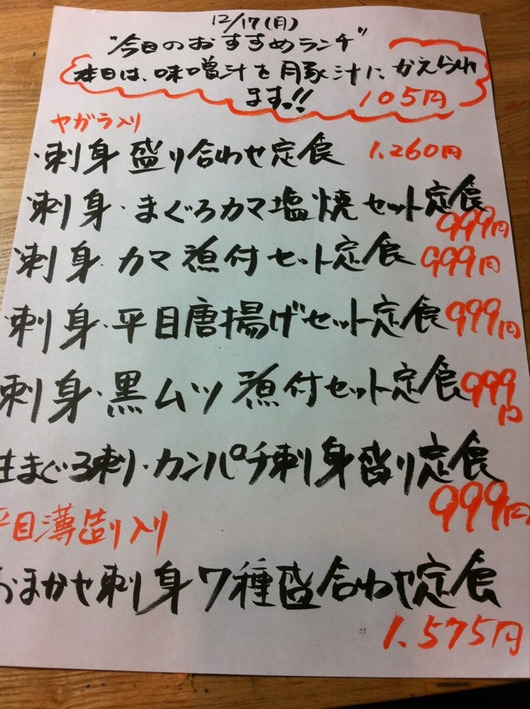 12/17(月)
"今日のおすすめランチ"
本日は、味噌汁を豚汁にかえられ
ます!!
105円
ヤガラ入り
・刺身盛り合わせ定食 1,260円
・刺身・まぐろカマ塩焼セット定食
999円
刺身・カマ煮付セット定食 999円
・刺身・平目唐揚げセット定食 999円
刺身・黒ムツ煮付セット定食 999円
生まぐろ刺し・カンパチ刺身盛り定食
999円
平目薄造り入り
おまかせ刺身7種盛合わせ定食
1,575円